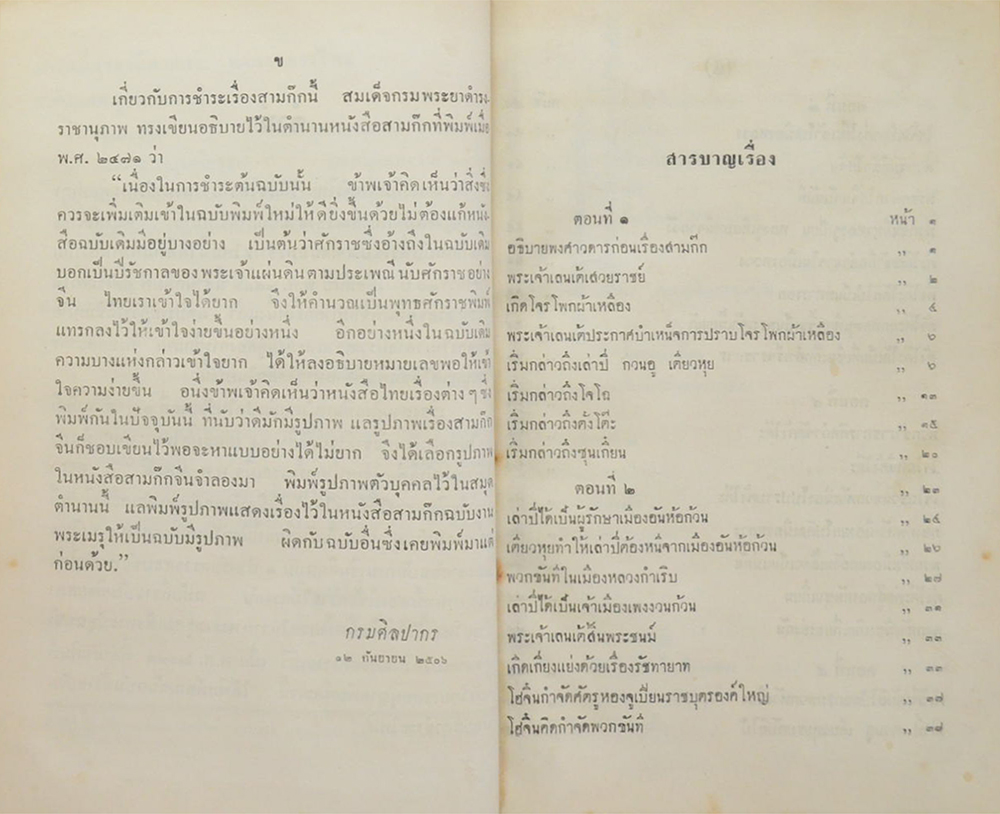 ข
เกี่ยวกับการชำระเรื่องสามก๊กนี้ สมเด็จกรมพระยาดำรง
ราชานุภาพ ทรงเขียนอธิบายไว้ในตำนานหนังสือสามก๊กที่พิมพ์เมื่อ
พ.ศ. ๒๔๗๑ ว่า
“เนื่องในการชำระต้นฉบับนั้น ข้าพเจ้าคิดเห็นว่าสิ่งซึ่ง
ควรจะเพิ่มเติมเข้าในฉบับพิมพ์ใหม่ให้ดียิ่งขึ้นด้วยไม่ต้องแก้หนัง
สือฉบับเดิมมีอยู่บางอย่าง เป็นต้นว่าศักราชซึ่งอ้างถึงในฉบับเดิม
บอกเป็นปีรัชกาลของพระเจ้าแผ่นดินตามประเพณีนับศักราชอย่าง
จีน ไทยเราเข้าใจได้ยาก จึงให้คำนวณเป็นพุทธศักราชพิมพ์
แทรกลงไว้ให้เข้าใจง่ายขึ้นอย่างหนึ่ง อีกอย่างหนึ่งในฉบับเดิม
ความบางแห่งกล่าวเข้าใจยาก ได้ให้ลงอธิบายหมายเลขพอให้เข้า
ใจความง่ายขึ้น อนึ่งข้าพเจ้าคิดเห็นว่าหนังสือไทยเรื่องต่างๆซึ่ง
พิมพ์กันในปัจจุบันนี้ ที่นับว่าดีมักมีรูปภาพ แลรูปภาพเรื่องสามก๊ก
จีนก็ชอบเขียนไว้พอจะหาแบบอย่างได้ไม่ยาก จึงได้เลือกรูปภาพ
ในหนังสือสามก๊กจีนจำลองมา พิมพ์รูปภาพตัวบุคคลไว้ในสมุด
ตำนานนี้ แลพิมพ์รูปภาพแสดงเรื่องไว้ในหนังสือสามก๊กฉบับงาน
พระเมรุให้เป็นฉบับมีรูปภาพ ผิดกับฉบับอื่นซึ่งเคยพิมพ์มาแต่
ก่อนด้วย.”
กรมศิลปากร
๑๒ กันยายน ๒๕๐๖
สารบาญเรื่อง
ตอนที่ ๑ หน้า ๑
อธิบายพงศาวดารก่อนเรื่องสามก๊ก ,, ๑
พระเจ้าเลนเต้เสวยราชย์ ,, ๒
เกิดโจรโพกผ้าเหลือง ,, ๕
พระเจ้าเลนเต้ประกาศบำเหน็จการปราบโจรโพกผ้าเหลือง ,, ๖
เริ่มกล่าวถึงเล่าปี่ กวนอู เตียวหุย ,, ๖
เริ่มกล่าวถึงโจโฉ ,, ๑๓
เริ่มกล่าวถึงตั๋งโต๊ะ ,, ๑๕
เริ่มกล่าวถึงซุนเกี๋ยน ,, ๒๐
ตอนที่ ๒ ,, ๒๓
เล่าปี่ได้เป็นผู้รักษาเมืองอันห้อก้วน ,, ๒๕
เตียวหุยทำให้เล่าปี่ต้องหนีจากเมืองอันห้อก้วน ,, ๒๖
พวกขันทีในเมืองหลวงกำเริบ ,, ๒๗
เล่าปี่ได้เป็นเจ้าเมืองเพงงวนก้วน ,, ๓๑
พระเจ้าเลนเต้สิ้นพระชนม์ ,, ๓๓
เกิดเกี่ยงแย่งด้วยเรื่องรัชทายาท ,, ๓๓
โฮจิ๋นกำจัดศัตรูหองจูเปียนราชบุตรองค์ใหญ่ ,, ๓๗
โฮจิ๋นคิดกำจัดพวกขันที ,, ๓๘